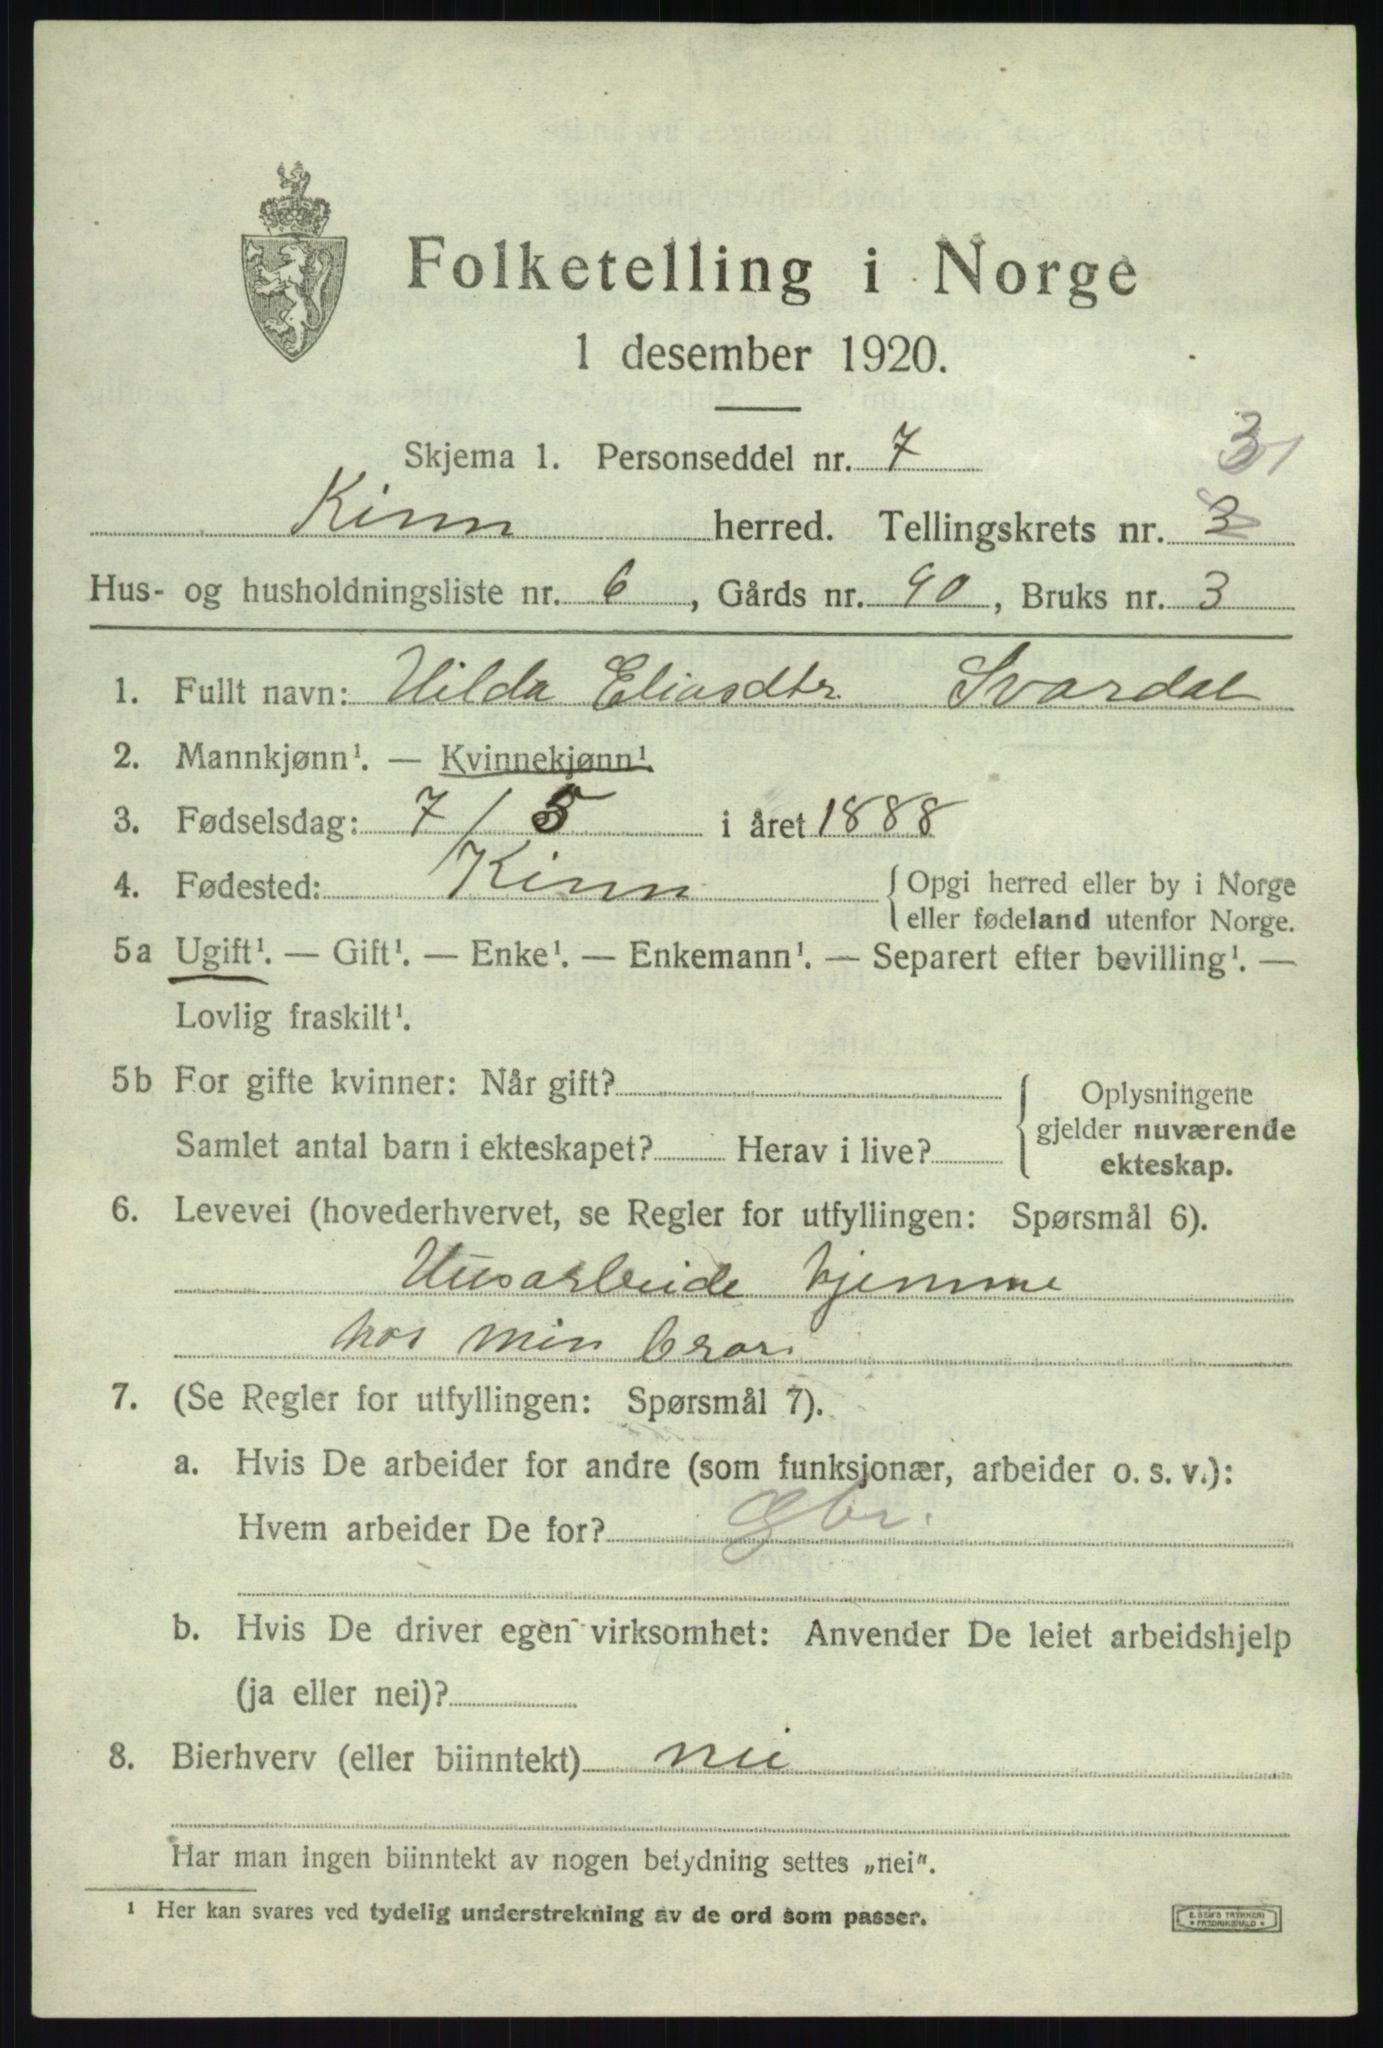 Folketelling i Norge
1 desember 1920.
Skjema 1. Personseddel nr. 7
3
Kinn herred. Tellingskrets nr. 3
Hus- og husholdningsliste nr. 6, Gårds nr. 90, Bruks nr. 3
1. Fullt navn: Hilda Eliasdtr. Svardal
2. Mannkjønn¹. — Kvinnekjønn¹.
3. Fødselsdag: 7/5 i året 1888
4. Fødested: Kinn {Opgi herred eller by i Norge
eller fødeland utenfor Norge.
5a Ugift¹. — Gift¹. — Enke¹. — Enkemann¹. — Separert efter bevilling¹. —
Lovlig fraskilt¹.
5b For gifte kvinner: Når gift? { Oplysningene
gjelder nuværende
Samlet antal barn i ekteskapet? Herav i live?
ekteskap.
6. Levevei (hovederhvervet, se Regler for utfyllingen: Spørsmål 6).
Husarbeide hjemme
hos min bror.
7. (Se Regler for utfyllingen: Spørsmål 7).
a. Hvis De arbeider for andre (som funksjonær, arbeider o. s. v.):
Hvem arbeider De for? Gbr.
b. Hvis De driver egen virksomhet: Anvender De leiet arbeidshjelp
(ja eller nei)?
8. Bierhverv (eller biinntekt) nei
Har man ingen biinntekt av nogen betydning settes „nei".
¹ Her kan svares ved tydelig understrekning av de ord som passer.
E. SEM'S TRYKKERI
FREDRIKSHALD